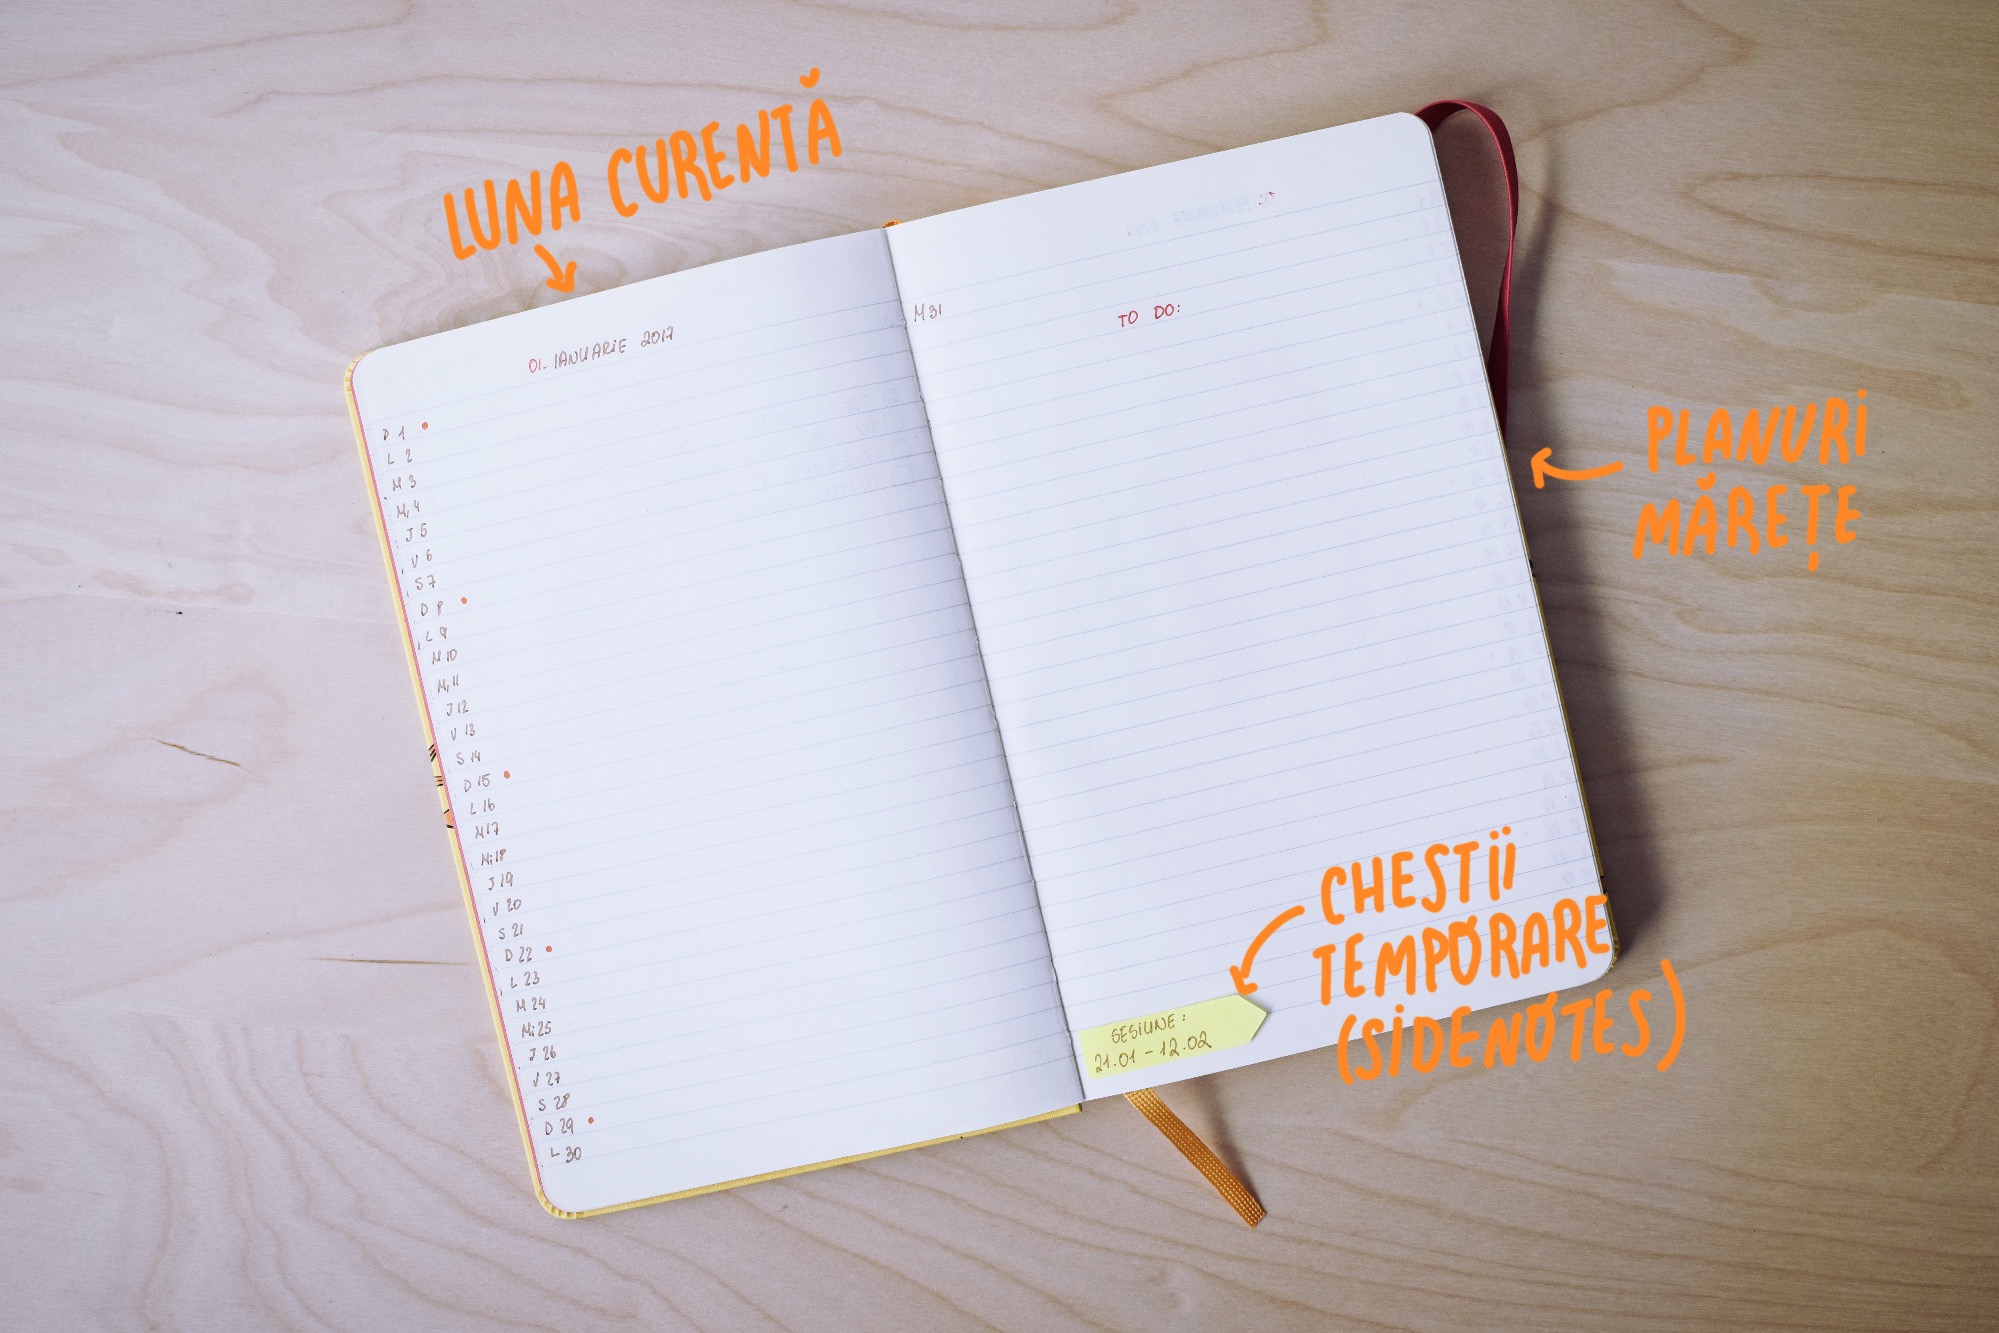 LUNA CURENTĂ
01. IANUARIE 2017
D 1 •
L 2
M 3
Mi 4
J 5
V 6
S 7
D 8 •
L 9
M 10
Mi 11
J 12
V 13
S 14
D 15 •
L 16
M 17
Mi 18
J 19
V 20
S 21
D 22 •
L 23
M 24
Mi 25
J 26
V 27
S 28
D 29 •
L 30
M 31
TO DO:
PLANURI
MĂREȚE
CHESTII
TEMPORARE
(SIDENOTES)
SESIUNE:
21.01 - 12.02